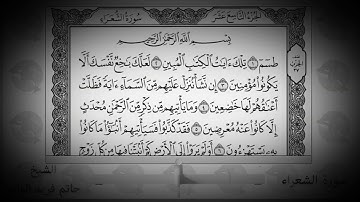 سُورَةُ الشُّعَرَاءِ
الجُزْءُ التَّاسِعَ عَشَرَ
بِسْمِ اللَّهِ الرَّحْمَٰنِ الرَّحِيمِ
طسٓمٓ ١ تِلْكَ ءَايَٰتُ ٱلْكِتَٰبِ ٱلْمُبِينِ ٢ لَعَلَّكَ بَٰخِعٌ نَّفْسَكَ أَلَّا
يَكُونُوا۟ مُؤْمِنِينَ ٣ إِن نَّشَأْ نُنَزِّلْ عَلَيْهِم مِّنَ ٱلسَّمَآءِ ءَايَةً فَظَلَّتْ
أَعْنَٰقُهُمْ لَهَا خَٰضِعِينَ ٤ وَمَا يَأْتِيهِم مِّن ذِكْرٍ مِّنَ ٱلرَّحْمَٰنِ مُحْدَثٍ
إِلَّا كَانُوا۟ عَنْهُ مُعْرِضِينَ ٥ فَقَدْ كَذَّبُوا۟ فَسَيَأْتِيهِمْ أَنۢبَٰٓؤُا۟ مَا كَانُوا۟
بِهِۦ يَسْتَهْزِءُونَ ٦ أَوَلَمْ يَرَوْا۟ إِلَى ٱلْأَرْضِ كَمْ أَنۢبَتْنَا فِيهَا مِن كُلِّ زَوْجٍ
سورة الشعراء
الشيخ
حاتم فريد